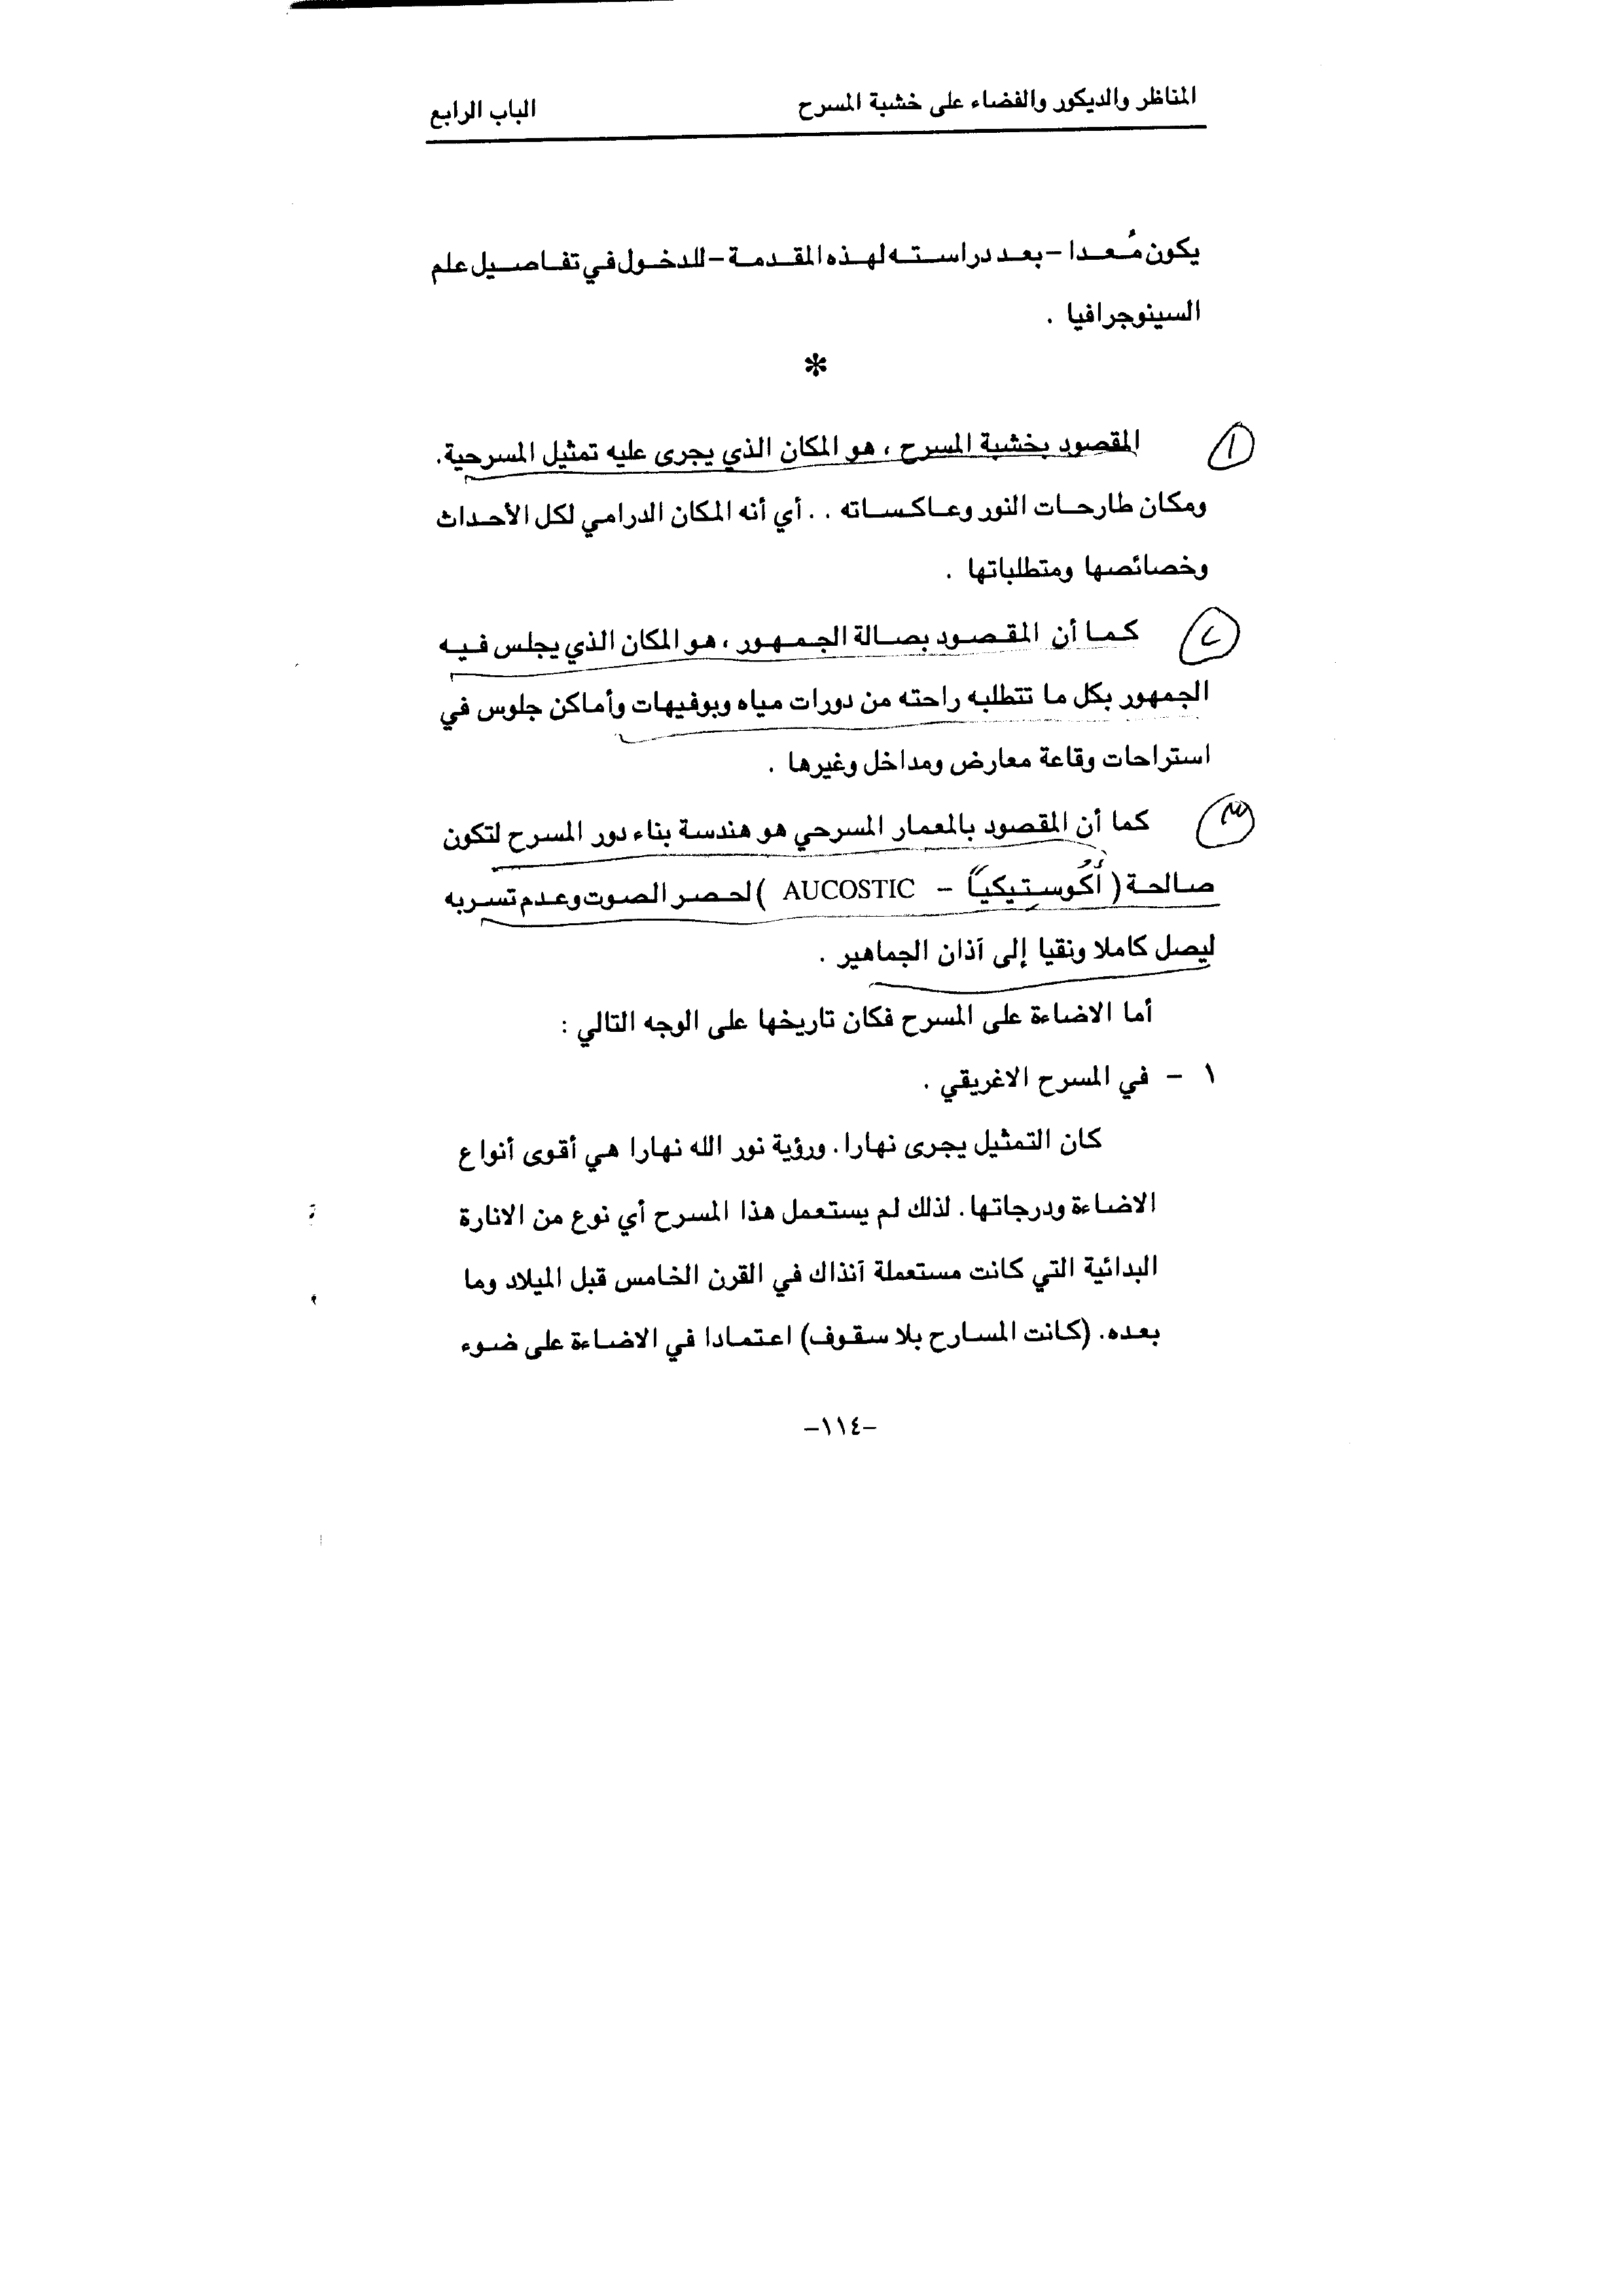 المناظر والديكور والفضاء على خشبة المسرح
الباب الرابع
يكون مُعدا – بعد دراسته لهذه المقدمة – للدخول في تفاصيل علم
السينوجرافيا .
*
١
المقصود بخشبة المسرح ، هو المكان الذي يجرى عليه تمثيل المسرحية.
ومكان طارحات النور وعاكساته . . أي أنه المكان الدرامي لكل الأحداث
وخصائصها ومتطلباتها .
٢
كما أن المقصود بصالة الجمهور ، هو المكان الذي يجلس فيه
الجمهور بكل ما تتطلبه راحته من دورات مياه وبوفيهات وأماكن جلوس في
استراحات وقاعة معارض ومداخل وغيرها .
٣
كما أن المقصود بالمعمار المسرحي هو هندسة بناء دور المسرح لتكون
صالحة ( أكُوستِيكياً – AUCOSTIC ) لحصر الصوت وعدم تسربه
ليصل كاملا ونقيا إلى آذان الجماهير .
أما الاضاءة على المسرح فكان تاريخها على الوجه التالي :
١ – في المسرح الاغريقي .
كان التمثيل يجرى نهارا. ورؤية نور الله نهارا هي أقوى أنواع
الاضاءة ودرجاتها. لذلك لم يستعمل هذا المسرح أي نوع من الانارة
البدائية التي كانت مستعملة آنذاك في القرن الخامس قبل الميلاد وما
بعده. (كانت المسارح بلا سقوف) اعتمادا في الاضاءة على ضوء
–١١٤–